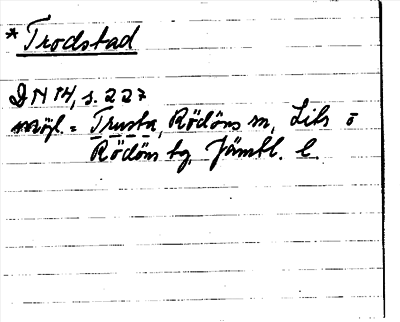 * Trodstad
DN 14, s. 227
möjl. = Trusta, Rödöns sn, Lits o
Rödöns tg, Jämtl. l.